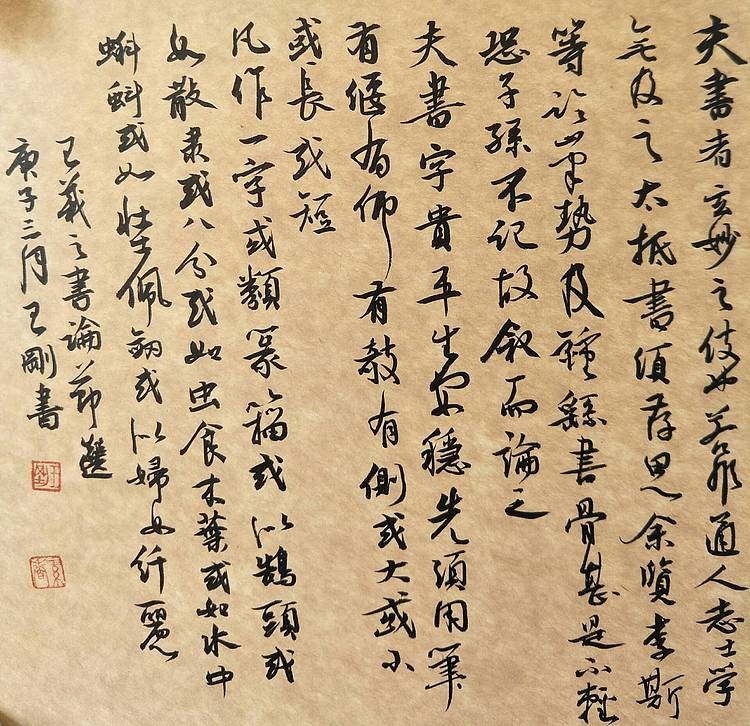 夫書者玄妙之伎也若非通人志士學
無及之大抵書須存思余覽李斯
等論筆勢及鍾繇書骨甚是不輕
恐子孫不記故敘而論之
夫書字貴平生安穩先須用筆
有偃有仰有敧有側或大或小
或長或短
凡作一字或類篆籀或似鵠頭或
如散隶或八分或如虫食木葉或如水中
蝌蚪或如壯士佩劒或似婦女纤麗
王羲之書論節選
庚子三月王剛書